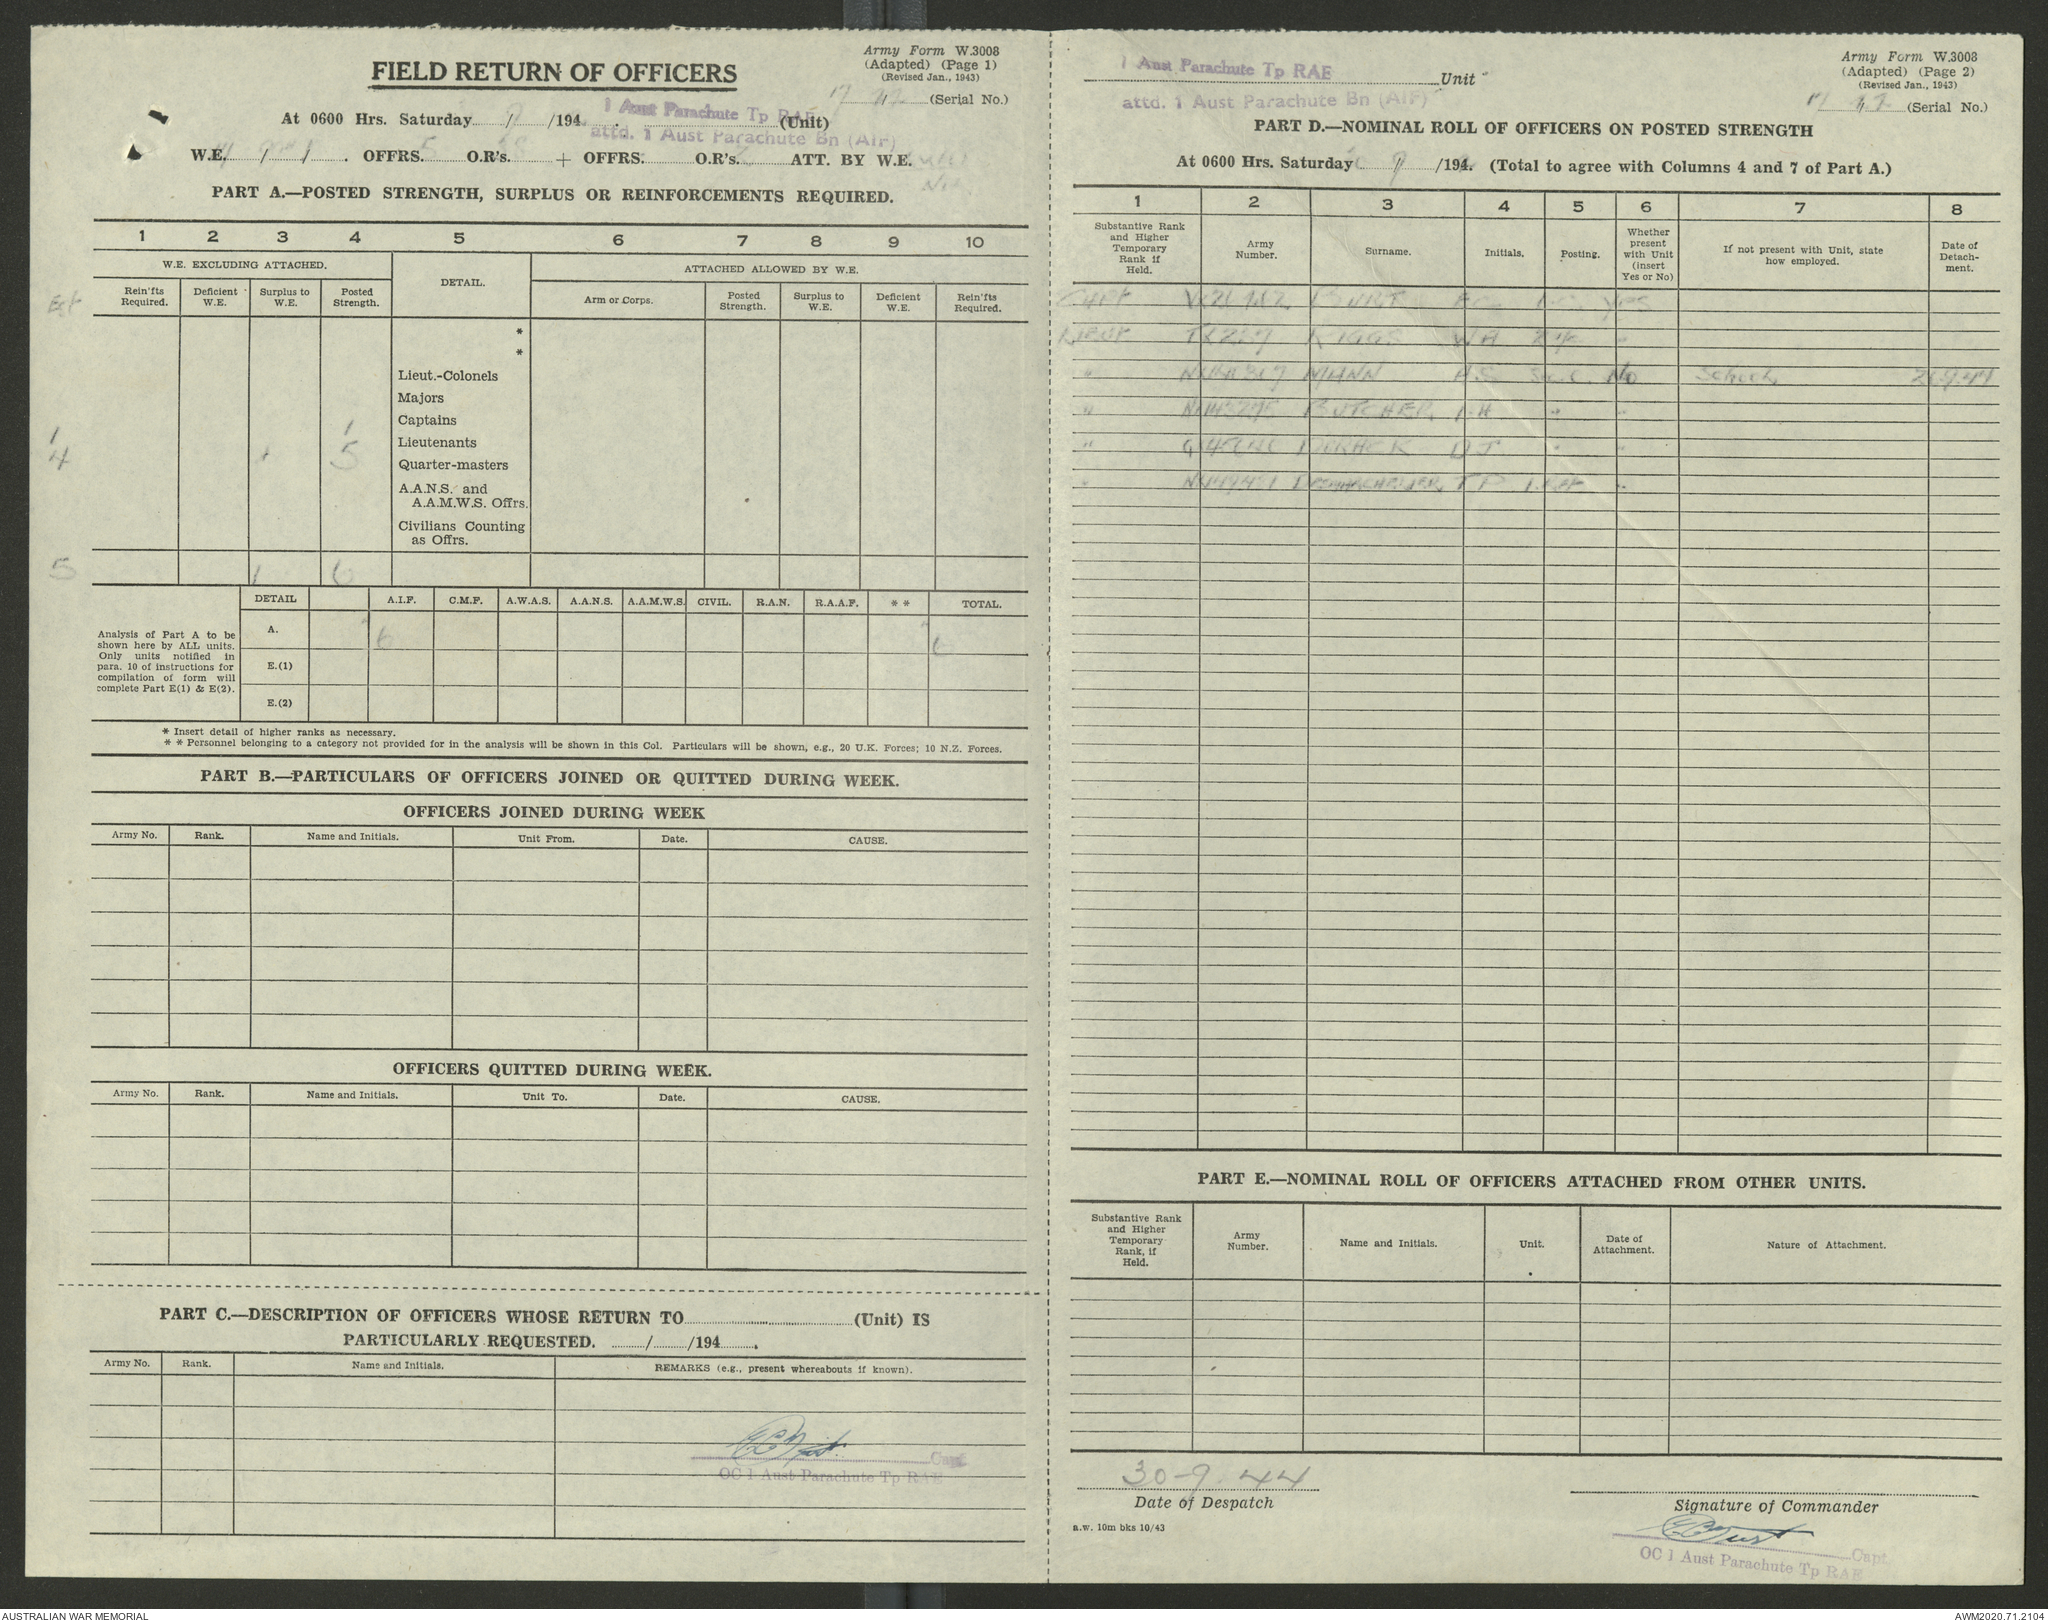 Army Form W.3008
(Adapted) (Page 1)
(Revised Jan., 1943)
(Serial No.)
FIELD RETURN OF OFFICERS
1 Aust Parachute Tp RAE
attd. 1 Aust Parachute Bn (AIF)
At 0600 Hrs. Saturday 9/194 . (Unit)
W.E. OFFRS. 5 O.R's. + OFFRS. O.R's. ATT. BY W.E.
PART A.—POSTED STRENGTH, SURPLUS OR REINFORCEMENTS REQUIRED.
1 2 3 4 5 6 7 8 9 10
W.E. EXCLUDING ATTACHED. DETAIL. ATTACHED ALLOWED BY W.E.
Rein'fts Required. Deficient W.E. Surplus to W.E. Posted Strength. Arm or Corps. Posted Strength. Surplus to W.E. Deficient W.E. Rein'fts Required.
Est
*
*
Lieut.-Colonels
Majors
1 1 Captains
4 5 Lieutenants
Quarter-masters
A.A.N.S. and
A.A.M.W.S. Offrs.
Civilians Counting
as Offrs.
5 1 6
DETAIL A.I.F. C.M.F. A.W.A.S. A.A.N.S. A.A.M.W.S. CIVIL. R.A.N. R.A.A.F. * * TOTAL.
Analysis of Part A to be
shown here by ALL units.
Only units notified in
para. 10 of instructions for
compilation of form will
complete Part E(1) & E(2).
A. 6 6
E.(1)
E.(2)
* Insert detail of higher ranks as necessary.
* * Personnel belonging to a category not provided for in the analysis will be shown in this Col. Particulars will be shown, e.g., 20 U.K. Forces; 10 N.Z. Forces.
PART B.—PARTICULARS OF OFFICERS JOINED OR QUITTED DURING WEEK.
OFFICERS JOINED DURING WEEK
Army No. Rank. Name and Initials. Unit From. Date. CAUSE.
OFFICERS QUITTED DURING WEEK.
Army No. Rank. Name and Initials. Unit To. Date. CAUSE.
PART C.—DESCRIPTION OF OFFICERS WHOSE RETURN TO (Unit) IS
PARTICULARLY REQUESTED. / /194 .
Army No. Rank. Name and Initials. REMARKS (e.g., present whereabouts if known).
Capt
OC 1 Aust Parachute Tp RAE
Army Form W.3008
(Adapted) (Page 2)
(Revised Jan., 1943)
(Serial No.)
1 Aust Parachute Tp RAE Unit
attd. 1 Aust Parachute Bn (AIF)
PART D.—NOMINAL ROLL OF OFFICERS ON POSTED STRENGTH
At 0600 Hrs. Saturday 9/194 . (Total to agree with Columns 4 and 7 of Part A.)
1 2 3 4 5 6 7 8
Substantive Rank and Higher Temporary Rank if Held. Army Number. Surname. Initials. Posting. Whether present with Unit (insert Yes or No) If not present with Unit, state how employed. Date of Detachment.
Capt Yes
Lieut RIGGS WA "
" MANN No School
" BUTCHER "
" DJ "
" TP "
PART E.—NOMINAL ROLL OF OFFICERS ATTACHED FROM OTHER UNITS.
Substantive Rank and Higher Temporary Rank, if Held. Army Number. Name and Initials. Unit. Date of Attachment. Nature of Attachment.
30-9-44
Date of Despatch
Signature of Commander
a.w. 10m bks 10/43
Capt
OC 1 Aust Parachute Tp RAE
AUSTRALIAN WAR MEMORIAL
AWM2020.71.2104